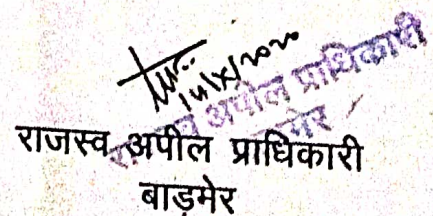 14/X/2020
राजस्व अपील प्राधिकारी
बाड़मेर
राजस्व अपील प्राधिकारी
बाडमेर